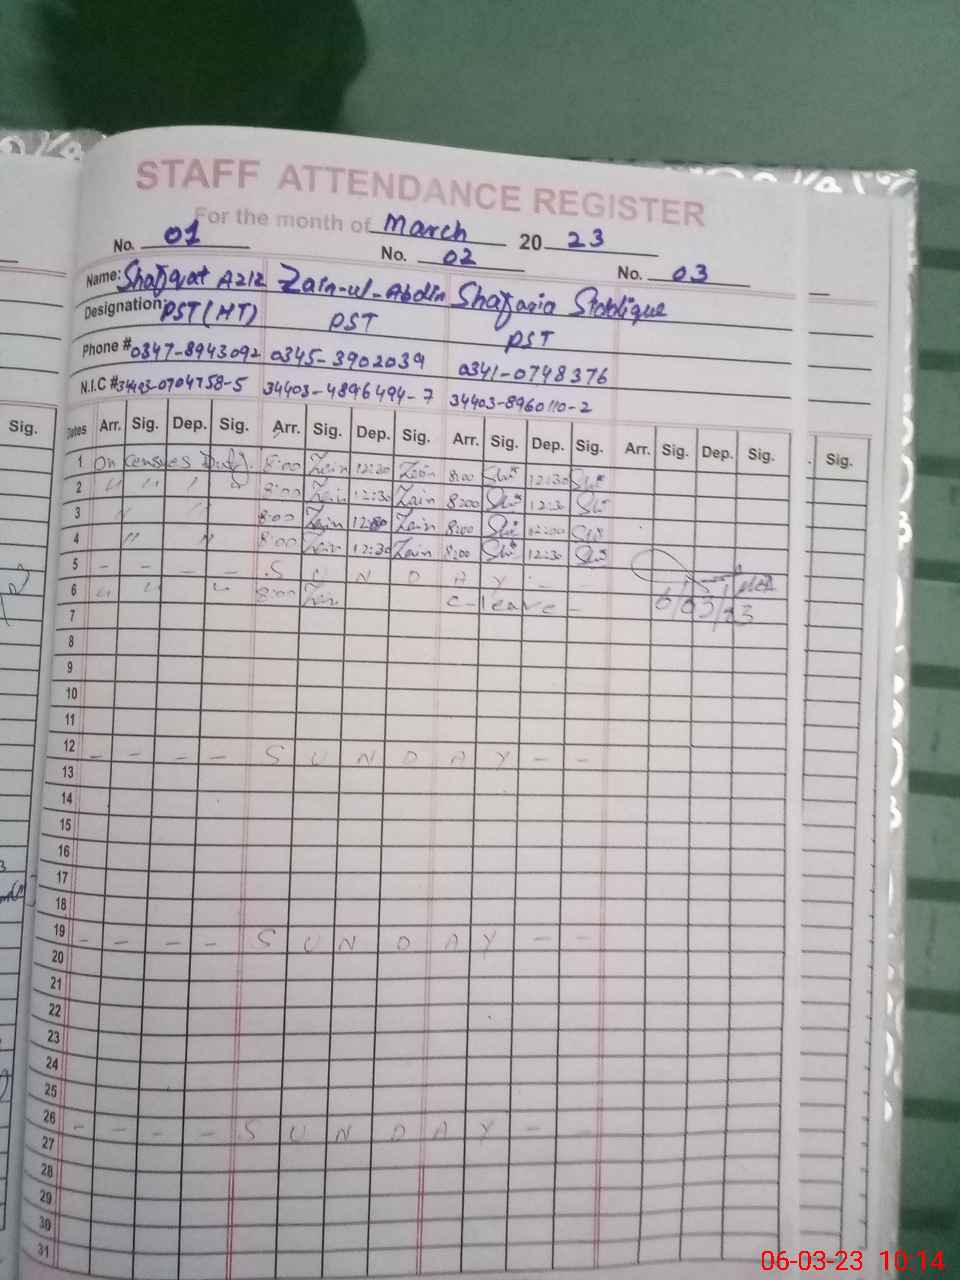 STAFF ATTENDANCE REGISTER
For the month of March 2023
No. 01 No. 02 No. 03
Name: Shafqat Aziz Zain-ul-Abdin Shafaria
Designation: PST (HT) PST PST
Phone # 0347-8943092 0345-3902039 0341-0748376
N.I.C # 34403-0704758-5 34403-4896494-7 34403-8960110-2
Sig.
Dates Arr. Sig. Dep. Sig. Arr. Sig. Dep. Sig. Arr. Sig. Dep. Sig. Arr. Sig. Dep. Sig. Sig.
1 On Censues Duty. 8:00 Zain 12:30 Zain 8:00 12:30
2 " " " " 8:00 Zain 12:30 Zain 8:00 12:30
3 " " 8:00 Zain 12:00 Zain 8:00 12:00
4 " " 8:00 Zain 12:30 Zain 8:00 12:30
5 - - - - S U N D A Y -
6 " " " 8:00 Zain C-leave - 6/03/23
7
8
9
10
11
12 - - - - S U N D A Y - -
13
14
15
16
17
18
19 - - - - S U N D A Y - -
20
21
22
23
24
25
26 - - - - S U N D A Y - -
27
28
29
30
31
06-03-23 10:14